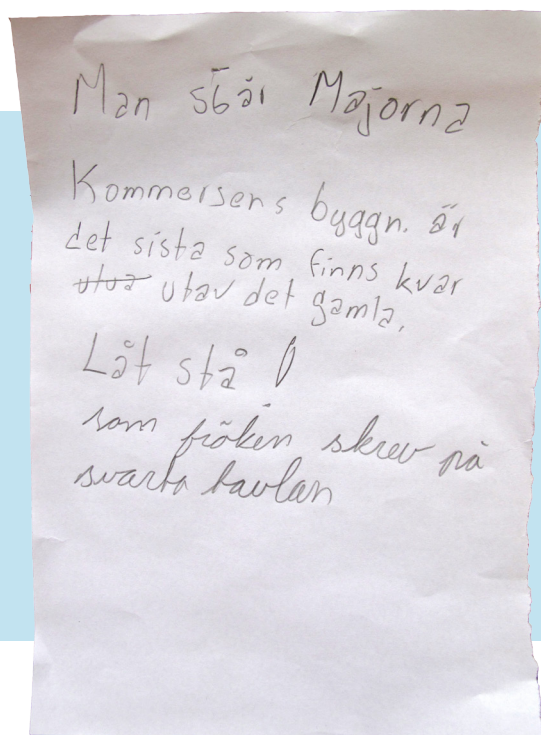 Man stär Majorna
Kommersens byggn. är
det sista som finns kvar
utav det gamla.
Låt stå!
som fröken skrev på
svarta tavlan